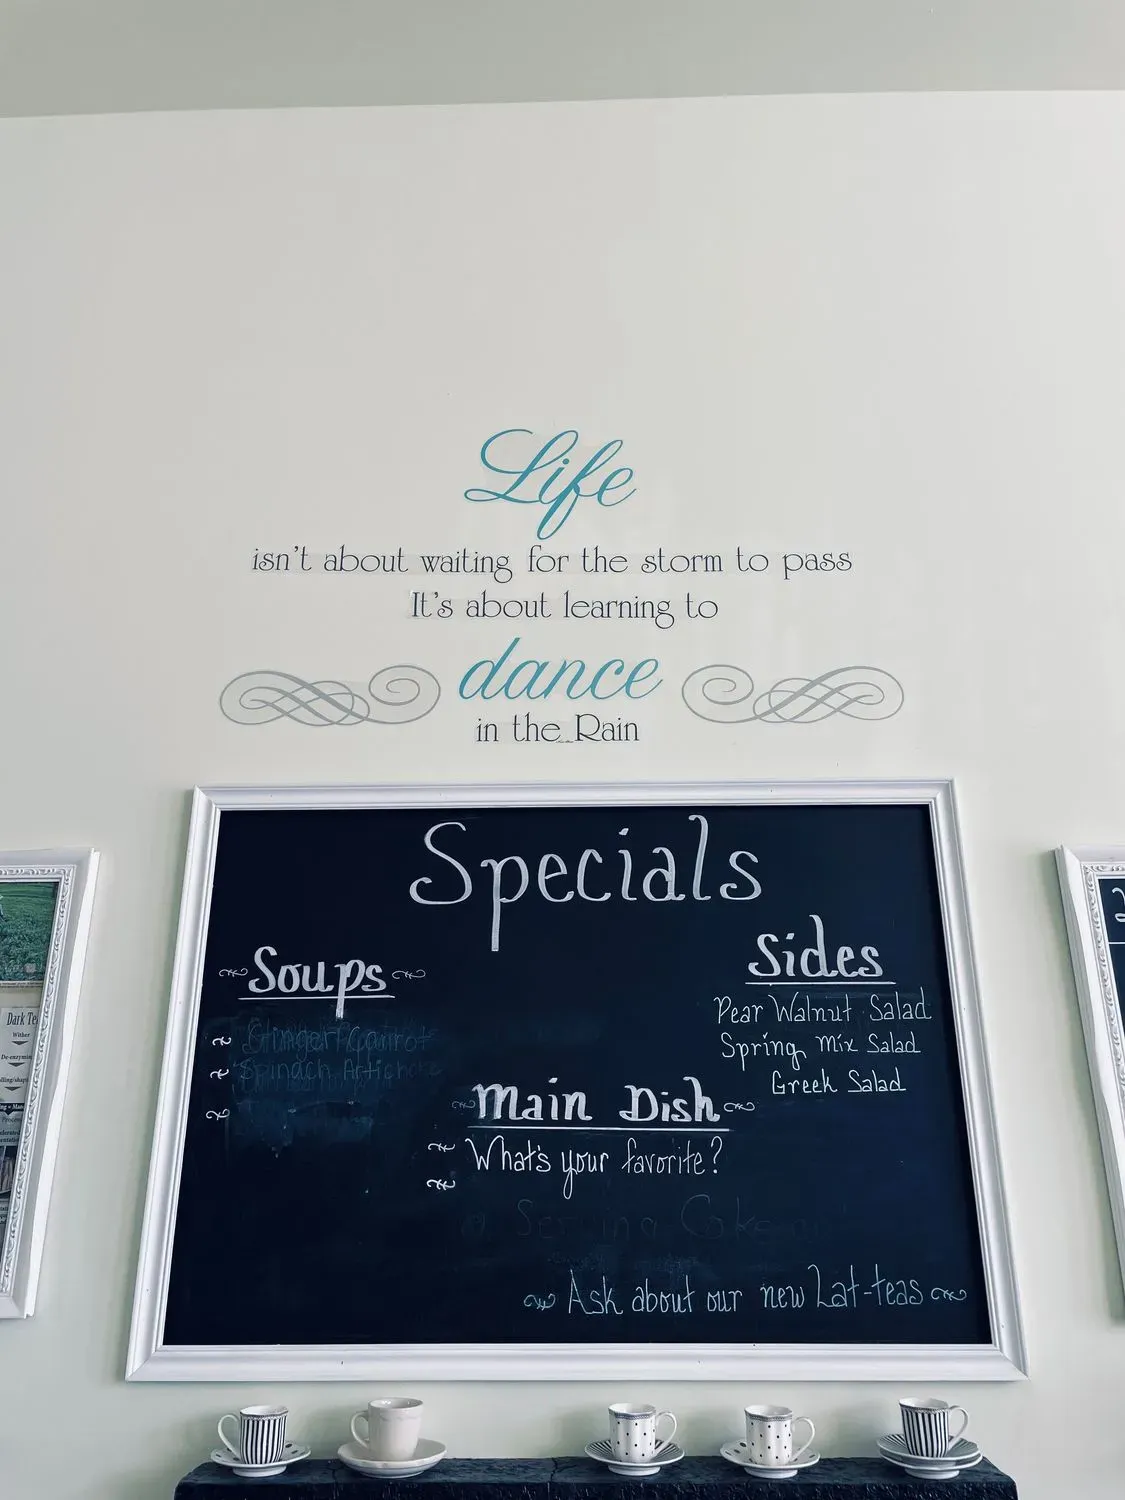 Life
isn't about waiting for the storm to pass
It's about learning to
dance
in the Rain
Specials
Soups
Ginger Carrot
Spinach Artichoke
Sides
Pear Walnut Salad
Spring Mix Salad
Greek Salad
Main Dish
What's your favorite?
Serving Cake
Ask about our new Lat-teas
Dark Te
Wither